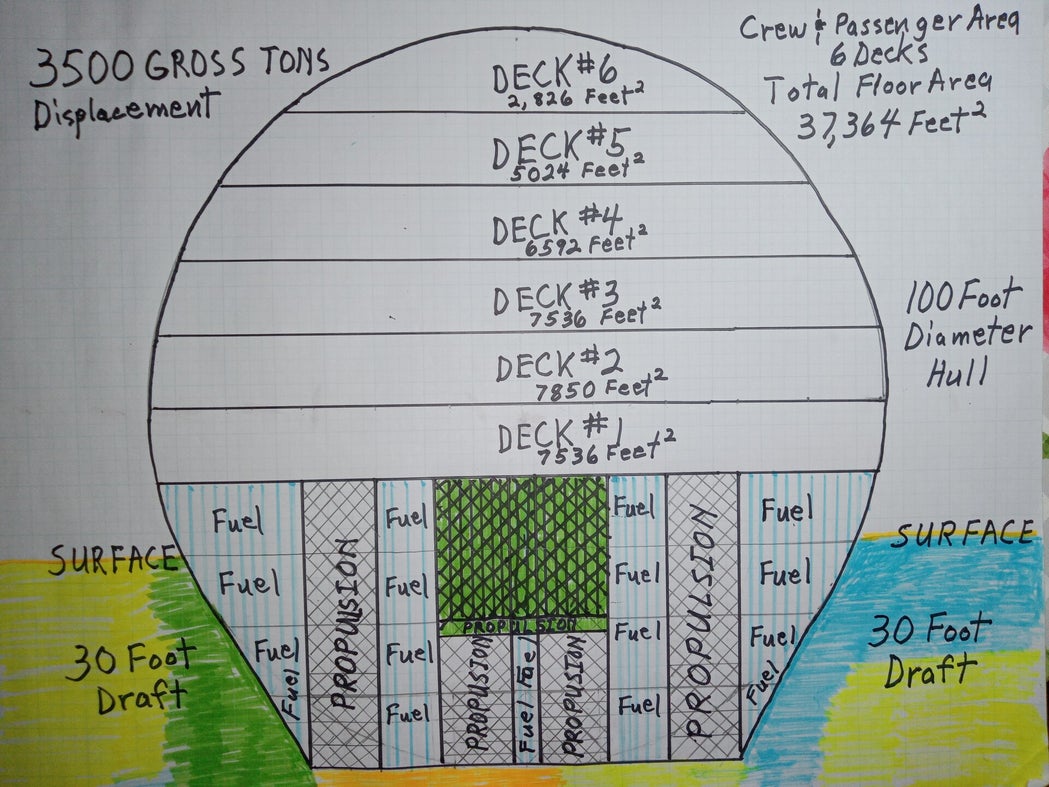 3500 GROSS TONS
Displacement
Crew & Passenger Area
6 Decks
Total Floor Area
37,364 Feet²
DECK #6
2,826 Feet²
DECK #5
5024 Feet²
DECK #4
6592 Feet²
DECK #3
7536 Feet²
DECK #2
7850 Feet²
DECK #1
7536 Feet²
100 Foot
Diameter
Hull
Fuel
Fuel
Fuel
Fuel
PROPULSION
Fuel
Fuel
Fuel
Fuel
PROPULSION
PROPULSION
Fuel Fuel
PROPULSION
Fuel
Fuel
Fuel
Fuel
PROPULSION
Fuel
Fuel
Fuel
Fuel
SURFACE
30 Foot
Draft
SURFACE
30 Foot
Draft